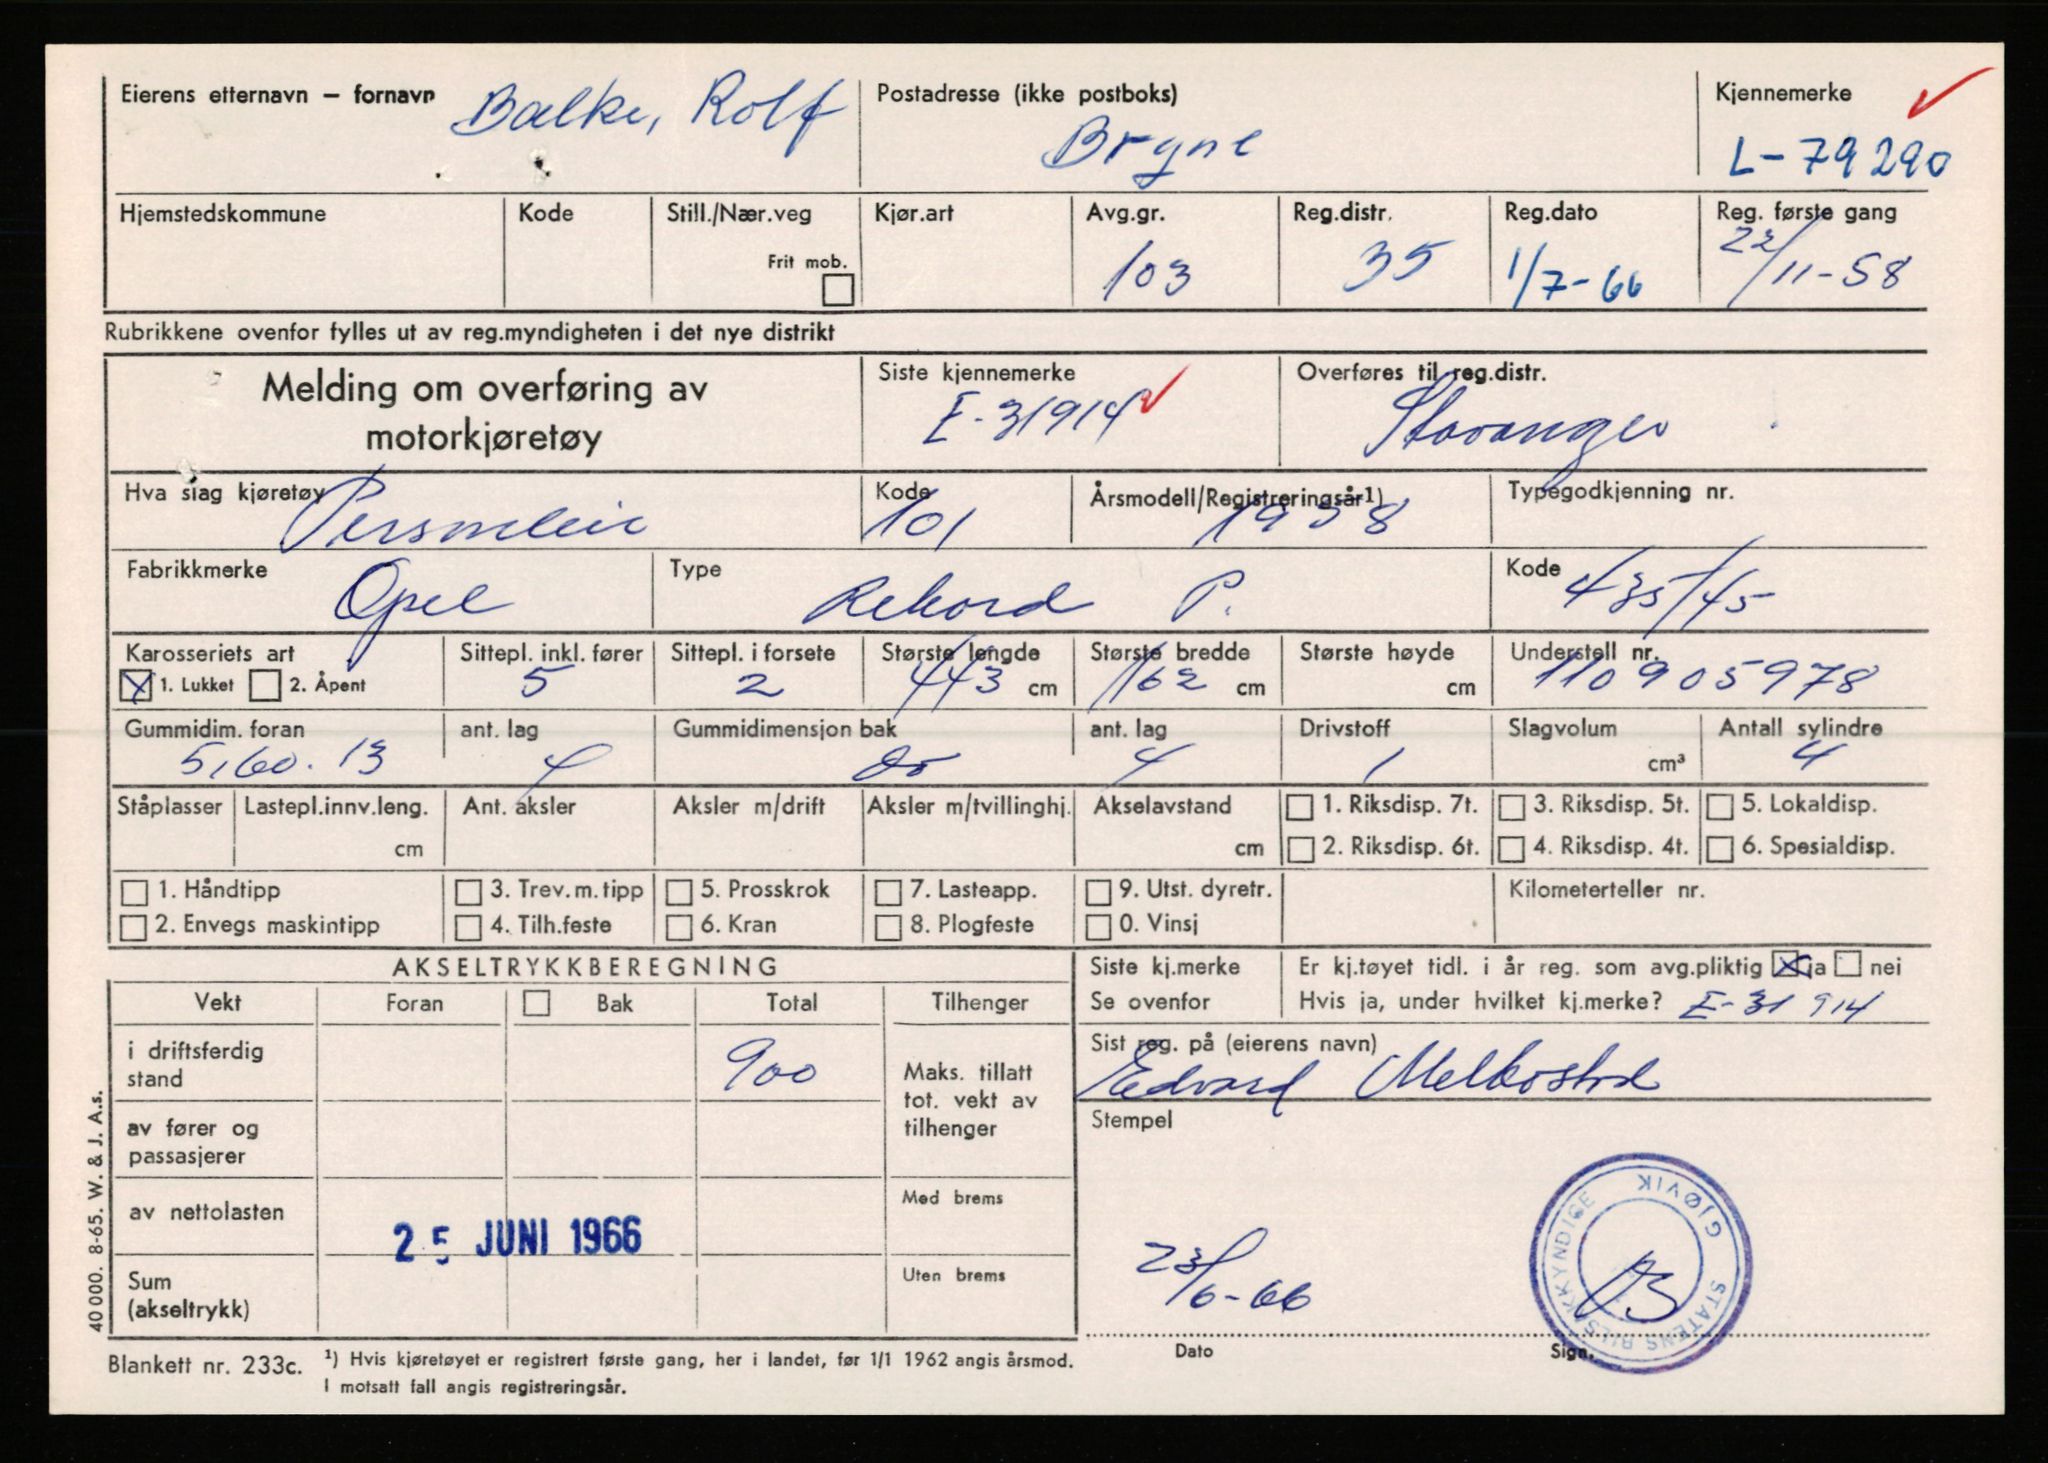 Eierens etternavn – fornavn Balke, Rolf Postadresse (ikke postboks) Bryne Kjennemerke L-79290
Hjemstedskommune Kode Still./Nær.veg Frit mob. Kjør.art Avg.gr. 103 Reg.distr. 35 Reg.dato 1/7-66 Reg. første gang 22/11-58
Rubrikkene ovenfor fylles ut av reg.myndigheten i det nye distrikt
Melding om overføring av motorkjøretøy Siste kjennemerke E-31914 Overføres til reg.distr. Stavanger
Hva slag kjøretøy Kode 101 Årsmodell/Registreringsår¹) 1958 Typegodkjenning nr.
Fabrikkmerke Opel Type Rekord P. Kode 435/45
Karosseriets art 1. Lukket 2. Åpent Sittepl. inkl. fører 5 Sittepl. i forsete 2 Største lengde 443 cm Største bredde 162 cm Største høyde cm Understell nr. 110905978
Gummidim. foran 5,60.13 ant. lag 4 Gummidimensjon bak do ant. lag 4 Drivstoff 1 Slagvolum cm³ Antall sylindre 4
Ståplasser Lastepl.innv.leng. cm Ant. aksler Aksler m/drift Aksler m/tvillinghj. Akselavstand cm 1. Riksdisp. 7t. 3. Riksdisp. 5t. 5. Lokaldisp.
2. Riksdisp. 6t. 4. Riksdisp. 4t. 6. Spesialdisp.
1. Håndtipp 3. Trev. m. tipp 5. Prosskrok 7. Lasteapp. 9. Utst. dyretr. Kilometerteller nr.
2. Envegs maskintipp 4. Tilh.feste 6. Kran 8. Plogfeste 0. Vinsj
AKSELTRYKKBEREGNING Siste kj.merke Er kj.tøyet tidl. i år reg. som avg.pliktig ja nei
Vekt Foran Bak Total Tilhenger Se ovenfor Hvis ja, under hvilket kj.merke? E-31914
i driftsferdig stand 900 Maks. tillatt tot. vekt av tilhenger Sist reg. på (eierens navn) Edvard
av fører og passasjerer Stempel
av nettolasten Med brems
25 JUNI 1966
Sum (akseltrykk) Uten brems 23/6-66
STATENS BILSAKKYNDIGE GJØVIK
Dato Sign.
40 000. 8-65. W. & J. A.s.
Blankett nr. 233c. ¹) Hvis kjøretøyet er registrert første gang, her i landet, før 1/1 1962 angis årsmod.
I motsatt fall angis registreringsår.